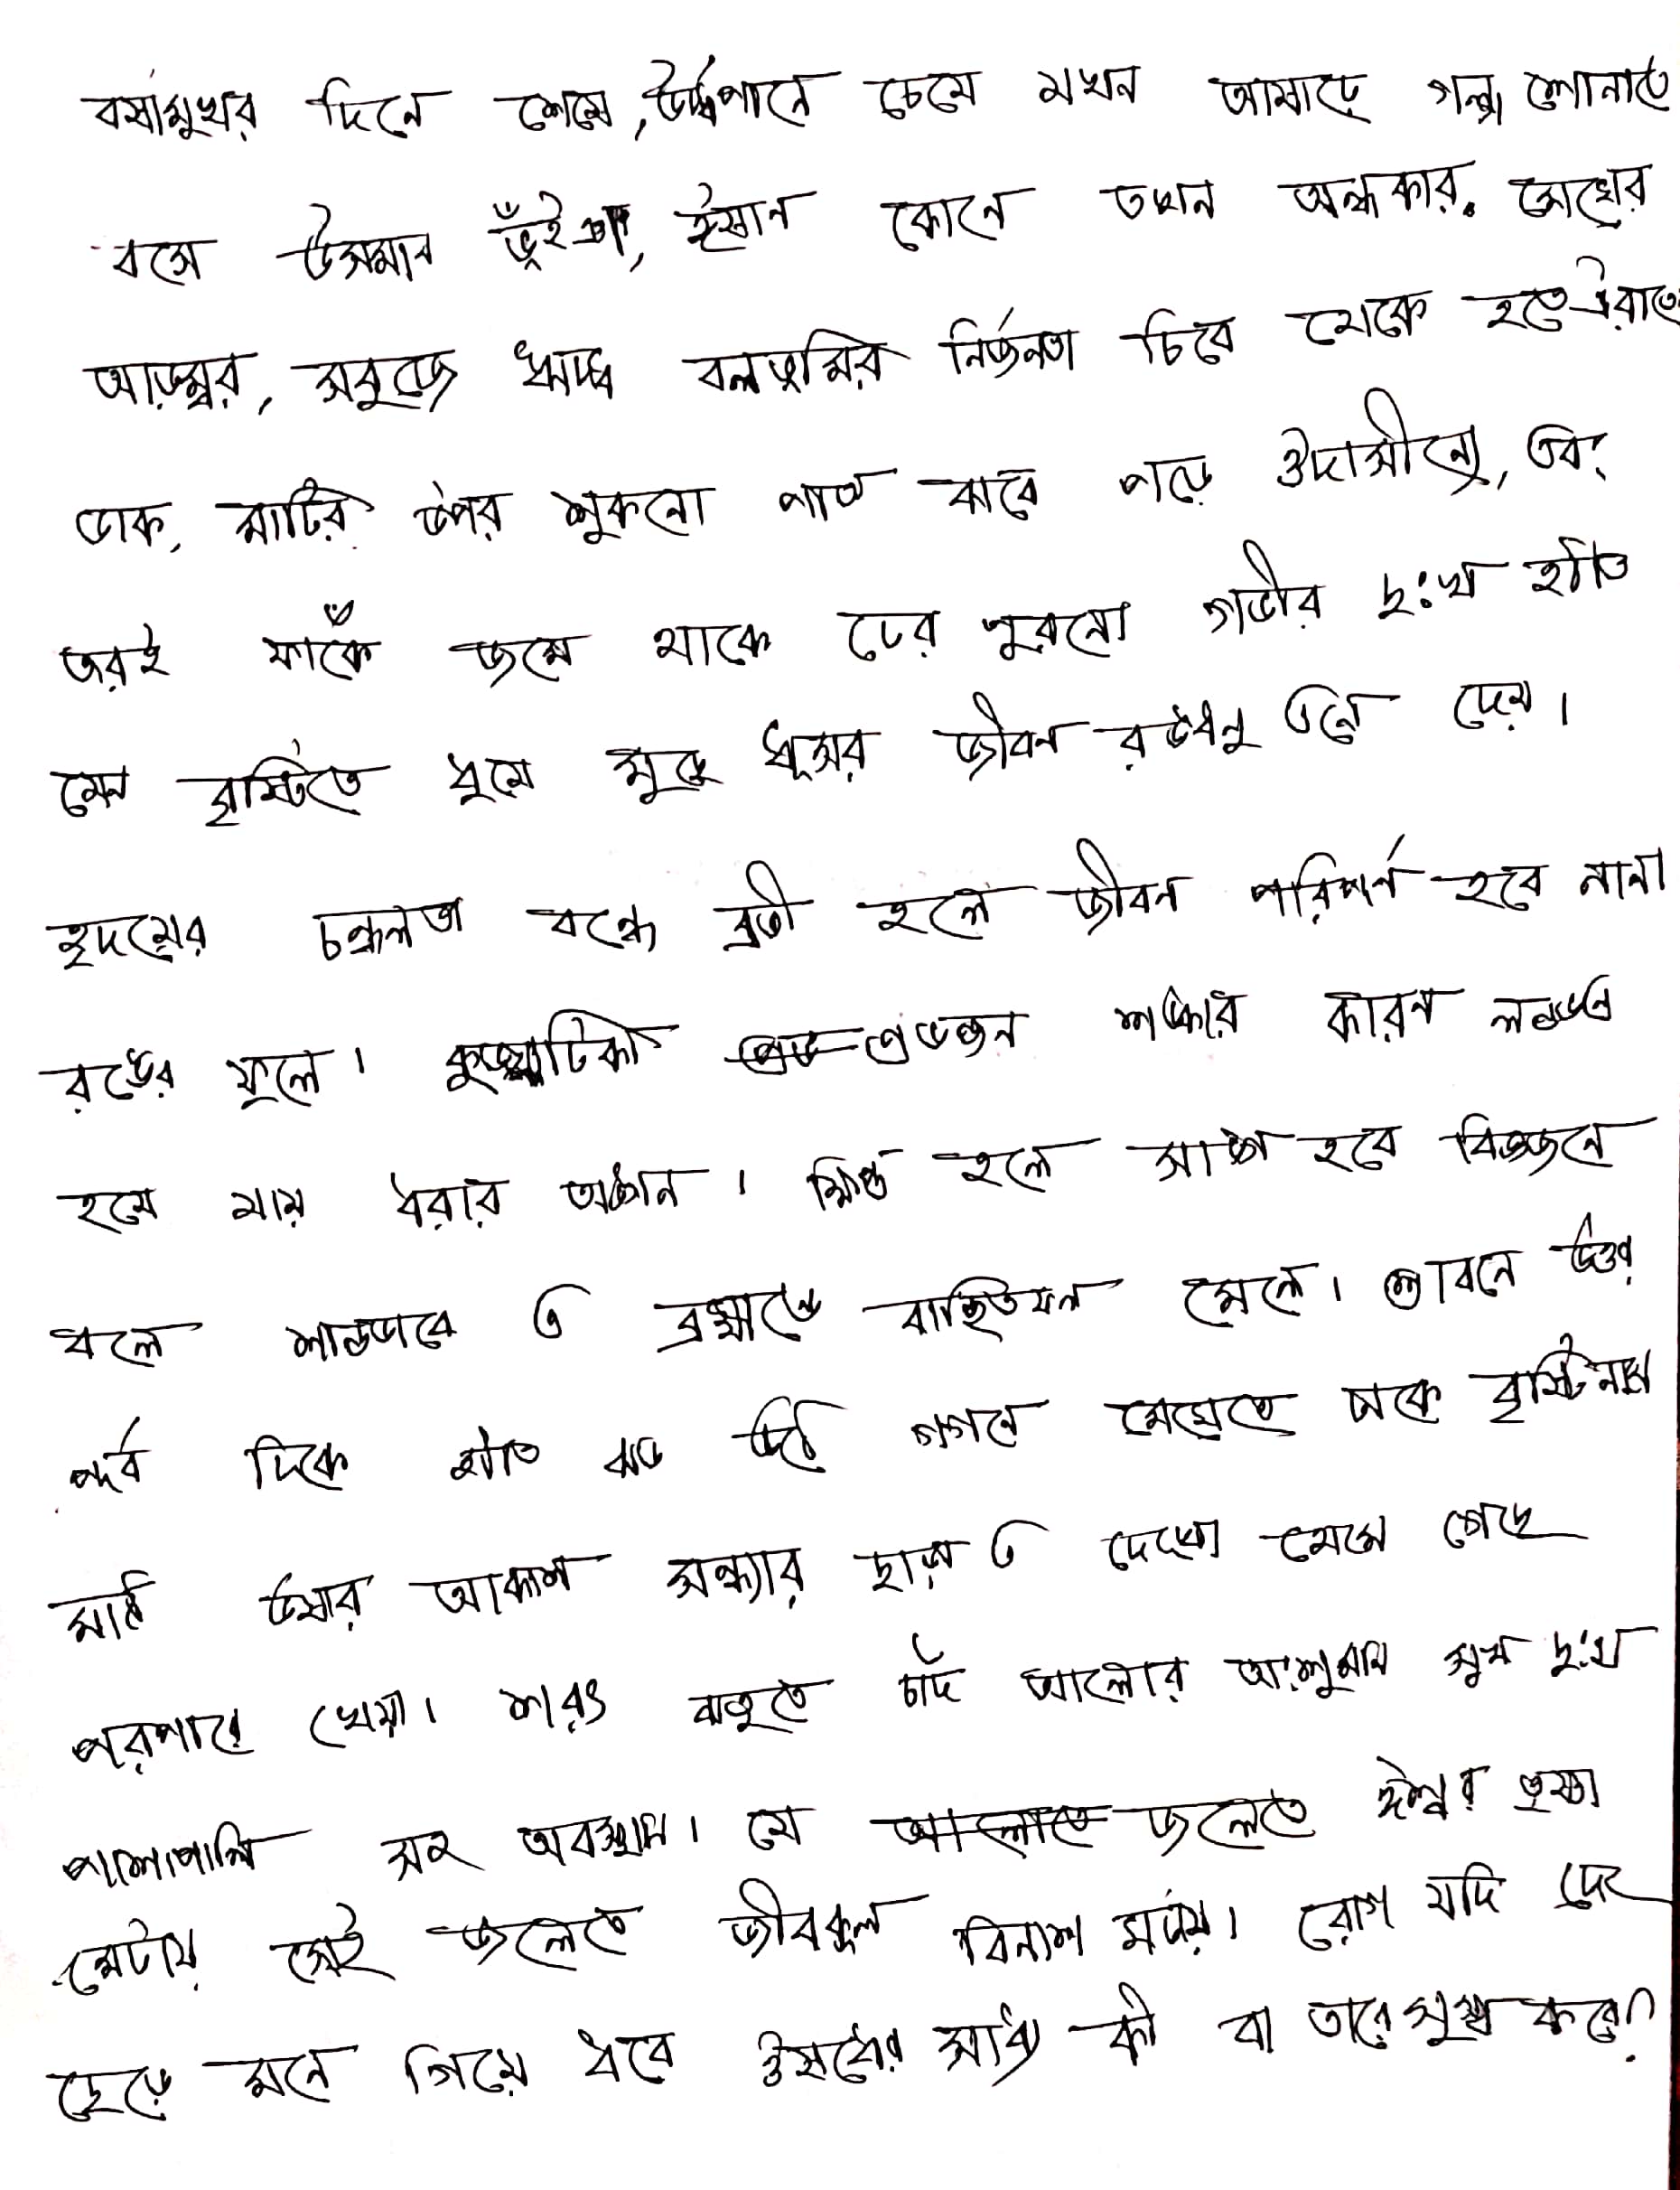 বর্ষামুখর দিনে শেষে, ঊর্ধ্বপানে চেয়ে যখন আষাঢ়ে গল্প শোনাতে
বসে উসমান ভুঁইঞা, ঈষান কোনে তখন অন্ধকার মেঘের
আড়ম্বর, সবুজে ঋদ্ধ বনভূমির নির্জনতা চিরে থেকে থেকে ঐরাবতের
ডাক, মাটির উপর শুকনো পাতা ঝরে পড়ে ঔদাসীন্যে, এবং
তারই ফাঁকে জমে থাকে ঢের পুরনো গভীর দুঃখ হঠাৎ
যেন বৃষ্টিতে ধুয়ে মুছে ধূসর জীবন রঙধনু এনে দেয়।
হৃদয়ের চঞ্চলতা বন্ধে ব্রতী হলে জীবন পরিপূর্ণ হবে নানা
রঙের ফুলে। কুজ্ঝটিকা প্রভঞ্জন শঙ্কার কারণ লণ্ডভণ্ড
হয়ে যায় ধরার অঙ্গন। ক্ষিপ্ত হলে সাঙ্গ হবে বিজ্ঞজনে
বলে শান্তভাবে এ ব্রহ্মাণ্ডে বাঞ্ছিতফল মেলে। শ্রাবনে উত্তর
পূর্ব দিকে হঠাৎ ঝড় উঠে গগনে মেঘেতে ঢাকে বৃষ্টি নামে
মাঠে ঊষার আকাশ সন্ধ্যার ছায়া এ দেখো থেমে গেছে
পরপারে খেয়া। শরৎ ঋতুতে চাঁদ আলোয় অংশুমান সুখ দুঃখ
পাশাপাশি সহ অবস্থান। যে জলেতে ঈশ্বর তৃষ্ণা
মেটায় সেই জলেতে জীবকুল বিনাশ ঘটায়। রোগ যদি দেহ
ছেড়ে মনে গিয়ে ধরে ঔষধের সাধ্য কী বা তারে সুস্থ করে?